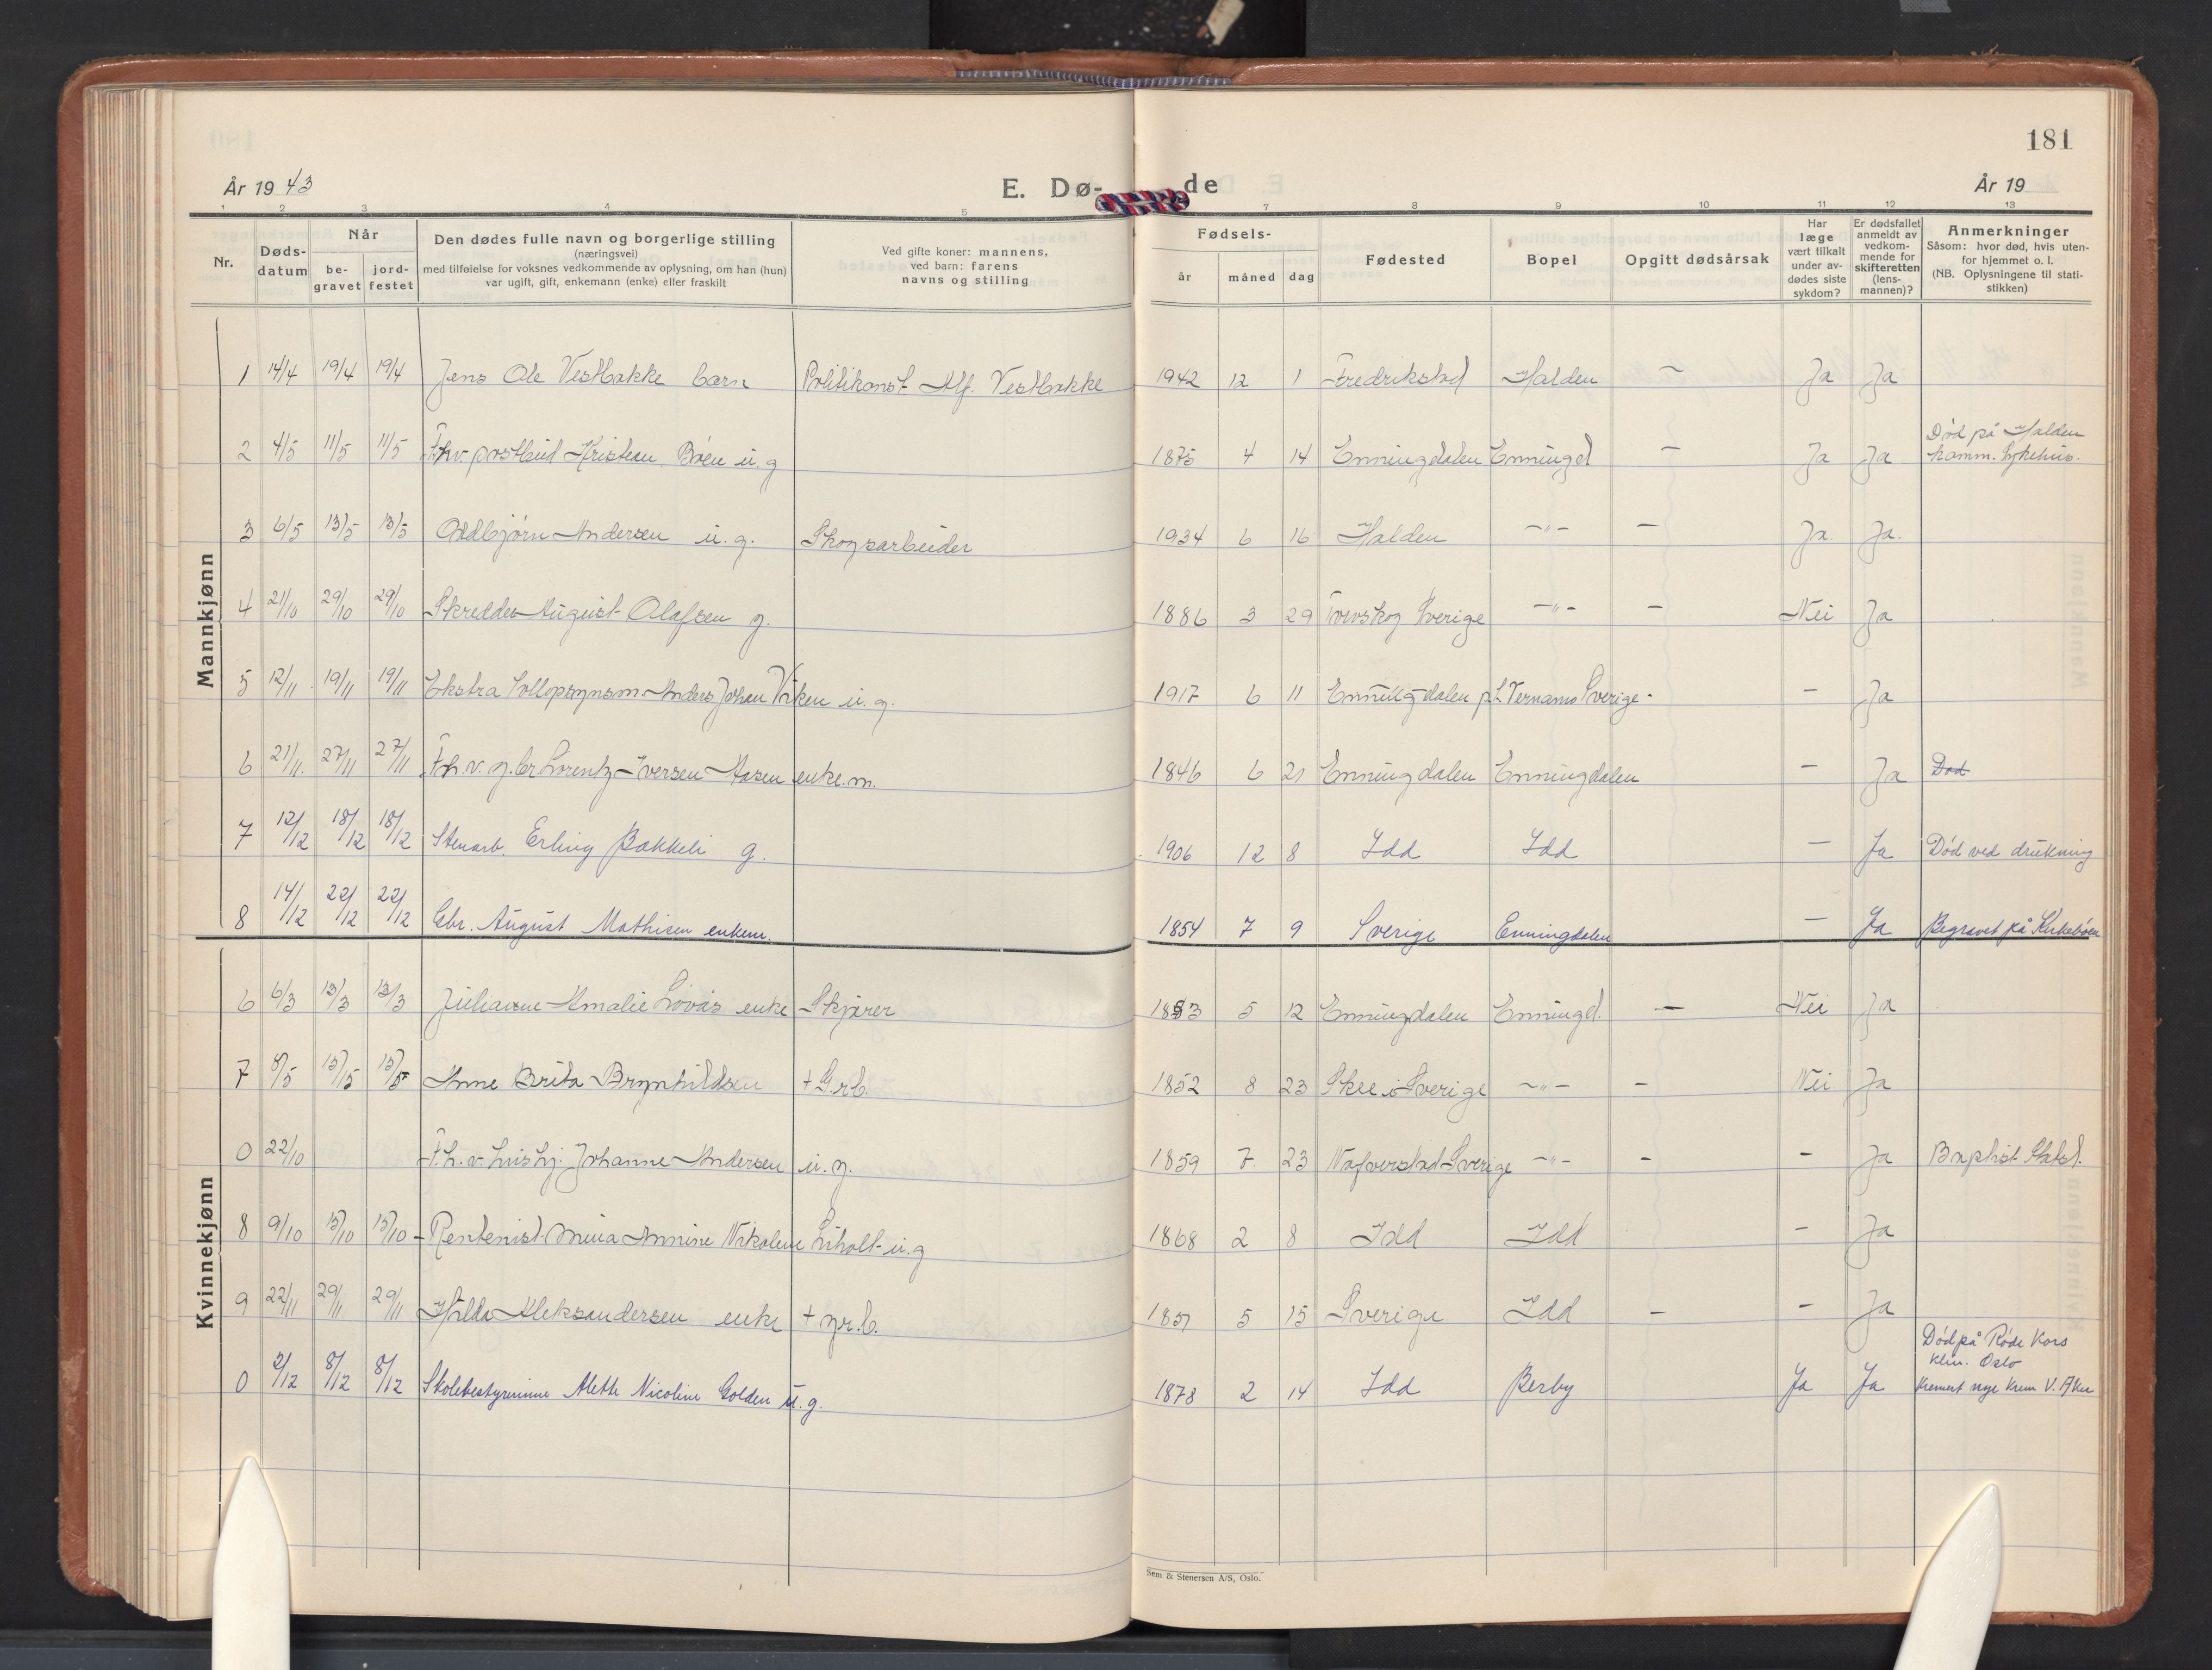 181
År 19 43
E. Dø-
de
År 19
1 2 3 4 5 7 8 9 10 11 12 13
Nr.
Døds-
datum
Når
be-
gravet
jord-
festet
Den dødes fulle navn og borgerlige stilling
(næringsvei)
med tilføielse for voksnes vedkommende av oplysning, om han (hun)
var ugift, gift, enkemann (enke) eller fraskilt
Ved gifte koner: mannens,
ved barn: farens
navns og stilling
Fødsels-
år
måned
dag
Fødested
Bopel
Opgitt dødsårsak
Har
læge
vært tilkalt
under av-
dødes siste
sykdom?
Er dødsfallet
anmeldt av
vedkom-
mende for
skifteretten
(lens-
mannen)?
Anmerkninger
Såsom: hvor død, hvis uten-
for hjemmet o. l.
(NB. Oplysningene til stati-
stikken)
Mannkjønn
1 14/4 19/4 19/4 Jens Ole Vestbakke barn Politikonst. Alf. Vestbakke 1942 12 1 Fredrikstad Halden - Ja Ja
2 4/5 11/5 11/5 Fhv. postbud Kristian Böen u.g 1875 4 14 Enningdalen Enningd - Ja Ja Död på Halden
komm. Sykehus.
3 6/5 13/5 13/5 Oddbjörn Andersen u.g. Skogsarbeider 1934 6 16 Halden -"- - Ja Ja.
4 21/10 29/10 29/10 Skredder August Olafsen g. 1886 3 29 Torvskog Sverige -"- - Nei Ja
5 12/11 19/11 19/11 Ekstra tollopsynsm. Anders Johan Viken u.g. 1917 6 11 Enningdalen p.t. Vernamo Sverige - - Ja
6 21/11 27/11 27/11 F.h.v. g.br Lorentz Iversen Aasen enke.m. 1846 6 21 Enningdalen Enningdalen - Ja Död
7 12/12 18/12 18/12 Stenarb. Erling Bakkeli g. 1906 12 8 Idd Idd - Ja Död ved drukning
8 14/12 22/12 22/12 Gbr. August Mathisen enkem. 1854 7 9 Sverige Enningdalen - Ja Begravet på Kirkebøen
Kvinnekjønn
6 6/3 13/3 13/3 Julianne Amalie Lövås enke Skjærer 1853 5 12 Enningdalen Enningd. - Nei Ja
7 8/5 15/5 15/5 Anne Brita Brynhildsen + G.rb. 1852 8 23 Skee i Sverige -"- - Nei Ja
0 22/10 F.h.v. hushj. Johanne Andersen u.g. 1859 7 23 Nafverstad Sverige -"- - - Ja Baptist
8 9/10 15/10 15/10 Rentenist Annine Nikoline Liholt u.g 1868 2 8 Idd Idd - Ja
9 22/11 29/11 29/11 Hilda Aleksandersen enke + gr.b. 1857 5 15 Sverige Idd - - Ja
0 2/12 8/12 8/12 Skolebestyrerinne Alette Nicoline Golden u.g. 1878 2 14 Idd Berby Ja Ja Död på Röde Kors
Klin. Oslo
Kremert nye Krem V. Aker
Sem & Stenersen A/S, Oslo.